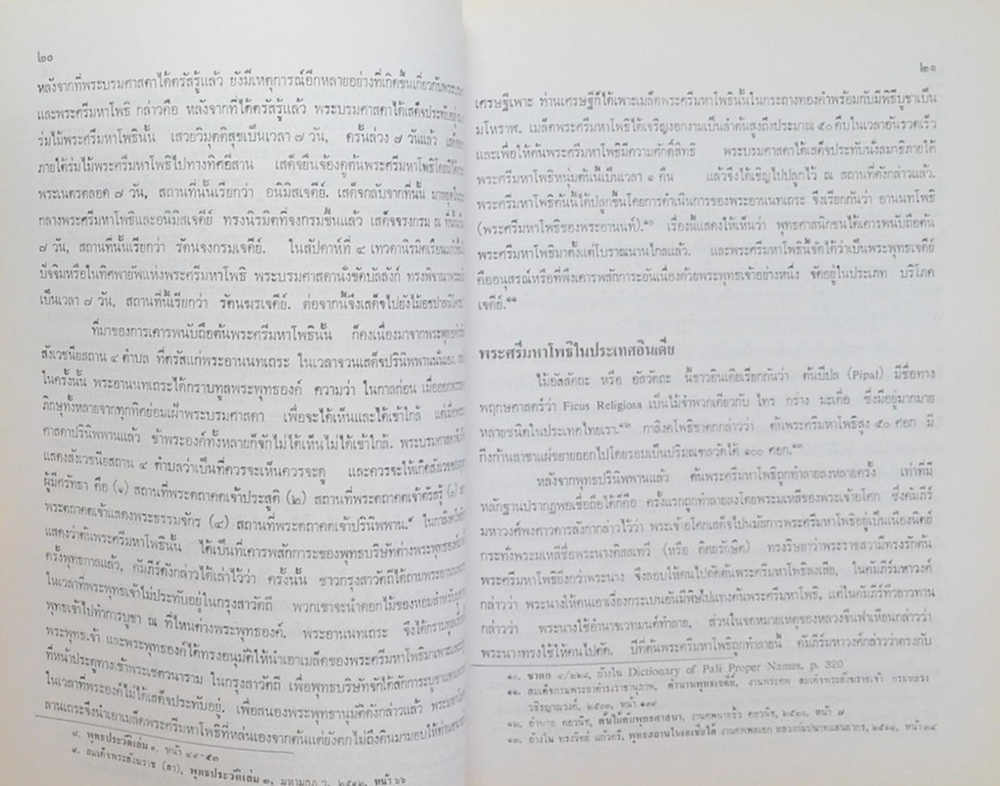 ๒๐
หลังจากที่พระบรมศาสดาได้ตรัสรู้แล้ว ยังมีเหตุการณ์อีกหลายอย่างที่เกิดขึ้นเกี่ยวกับพระบรม
และพระศรีมหาโพธิ กล่าวคือ หลังจากที่ได้ตรัสรู้แล้ว พระบรมศาสดาได้เสด็จประทับอยู่
ร่มไม้พระศรีมหาโพธินั้น เสวยวิมุตติสุขเป็นเวลา ๗ วัน, ครั้นล่วง ๗ วันแล้ว
ภายใต้ร่มไม้พระศรีมหาโพธิไปทางทิศอีสาน เสด็จยืนจ้องดูต้นพระศรีมหาโพธิโดยมิได้
พระเนตรตลอด ๗ วัน, สถานที่นั้นเรียกว่า อนิมิสเจดีย์. เสด็จกลับจากที่นั้น มาหยุด
กลางพระศรีมหาโพธิและอนิมิสเจดีย์ ทรงนิรมิตที่จงกรมขึ้นแล้ว เสด็จจงกรม ณ ที่นั้น
๗ วัน, สถานที่นั้นเรียกว่า รัตนจงกรมเจดีย์. ในสัปดาห์ที่ ๔ เทวดานิรมิตเรือนแก้ว
ปัจฉิมหรือในทิศพายัพแห่งพระศรีมหาโพธิ พระบรมศาสดานั่งขัดบัลลังก์ ทรงพิจารณา
เป็นเวลา ๗ วัน, สถานที่นี้เรียกว่า รัตนฆรเจดีย์. ต่อจากนี้จึงเสด็จไปยังไม้อชปาลนิโครธ
ที่มาของการเคารพนับถือต้นพระศรีมหาโพธินั้น ก็คงเนื่องมาจากพระพุทธ
สังเวชนียสถาน ๔ ตำบล ที่ตรัสแก่พระอานนทเถระ ในเวลาจวนเสด็จปรินิพพาน
ในครั้งนั้น พระอานนทเถระได้กราบทูลพระพุทธองค์ ความว่า ในกาลก่อน เมื่อออกพรรษา
ภิกษุทั้งหลายจากทุกทิศย่อมเฝ้าพระบรมศาสดา เพื่อจะได้เห็นและได้เข้าใกล้ แต่เมื่อพระ
ศาสดาปรินิพพานแล้ว ข้าพระองค์ทั้งหลายก็จักไม่ได้เห็นไม่ได้เข้าใกล้. พระบรมศาสดาจึง
แสดงสังเวชนียสถาน ๔ ตำบลว่าเป็นที่ควรจะเห็นควรจะดู และควรจะให้เกิดสังเวช
ผู้มีศรัทธา คือ (๑) สถานที่พระตถาคตเจ้าประสูติ (๒) สถานที่พระตถาคตเจ้าตรัสรู้ (๓)
พระตถาคตเจ้าแสดงพระธรรมจักร (๔) สถานที่พระตถาคตเจ้าปรินิพพาน.๙
แสดงว่าต้นพระศรีมหาโพธินั้น ได้เป็นที่เคารพสักการะของพุทธบริษัทต่างพระพุทธองค์
ครั้งพุทธกาลแล้ว, คัมภีร์ดังกล่าวได้เล่าไว้ว่า ครั้งนั้น ชาวกรุงสาวัตถีได้ถามพระอานนท
ในเวลาที่พระพุทธเจ้าไม่ประทับอยู่ในกรุงสาวัตถี พวกเขาจะนำดอกไม้ของหอม
พุทธเจ้าไปทำการบูชา ณ ที่ไหนต่างพระพุทธองค์. พระอานนทเถระ จึงได้กราบทูล
พระพุทธเจ้า และพระพุทธองค์ได้ทรงอนุมัติให้นำเอาเมล็ดของพระศรีมหาโพธิมาเพาะ
ที่หน้าประตูทางเข้าพระเชตวนาราม ในกรุงสาวัตถี เพื่อพุทธบริษัทจักได้สักการะบูชา
ในเวลาที่พระองค์ไม่ได้เสด็จประทับอยู่. เพื่อสนองพระพุทธานุมัติดังกล่าวแล้ว พระมหา
ลานเถระจึงนำเอาเมล็ดพระศรีมหาโพธิที่หล่นเองจากต้นแต่ยังตกไม่ถึงดินมามอบให้ท่าน
๘. พุทธประวัติเล่ม ๑, หน้า ๔๙-๕๓
๙. สมเด็จพระสังฆราช (สา), พุทธประวัติเล่ม ๓, มหามกุฏ ฯ, ๒๕๑๒, หน้า ๖๖
๒๑
เศรษฐีเพาะ ท่านเศรษฐีก็ได้เพาะเมล็ดพระศรีมหาโพธินั้นในกระถางทองคำพร้อมกับมีพิธีบูชาเป็น
มโหราฬ. เมล็ดพระศรีมหาโพธิได้เจริญงอกงามเป็นลำต้นสูงถึงประมาณ ๕๐ คืบในเวลาอันรวดเร็ว
และเพื่อให้ต้นพระศรีมหาโพธิมีความศักดิ์สิทธิ์ พระบรมศาสดาได้เสด็จประทับนั่งสมาธิภายใต้
พระศรีมหาโพธิหนุ่มต้นนี้เป็นเวลา ๑ คืน แล้วจึงได้เชิญไปปลูกไว้ ณ สถานที่ดังกล่าวแล้ว.
พระศรีมหาโพธิต้นนี้ได้ปลูกขึ้นโดยการดำเนินการของพระอานนทเถระ จึงเรียกกันว่า อานนทโพธิ
(พระศรีมหาโพธิของพระอานนท์).๑๐ เรื่องนี้แสดงให้เห็นว่า พุทธศาสนิกชนได้เคารพนับถือต้น
พระศรีมหาโพธิมาตั้งแต่โบราณนานไกลแล้ว. และพระศรีมหาโพธินี้จัดได้ว่าเป็นพระพุทธเจดีย์
คืออนุสรณ์หรือที่พึงเคารพสักการะอันเนื่องด้วยพระพุทธเจ้าอย่างหนึ่ง จัดอยู่ในประเภท บริโภค
เจดีย์.๑๑
พระศรีมหาโพธิในประเทศอินเดีย
ไม้อัสสัตถะ หรือ อัสวัตถะ นี้ชาวอินเดียเรียกกันว่า ต้นปีปัล (Pipal) มีชื่อทาง
พฤกษศาสตร์ว่า Ficus Religiosa เป็นไม้จำพวกเดียวกับ ไทร กร่าง มะเดื่อ ซึ่งมีอยู่มากมาย
หลายชนิดในประเทศไทยเรา.๑๒ กาลิงคโพธิชาดกกล่าวว่า ต้นพระศรีมหาโพธิสูง ๕๐ ศอก มี
กิ่งก้านสาขาแผ่ขยายออกไปโดยรอบเป็นปริมณฑลวัดได้ ๑๐๐ ศอก.๑๓
หลังจากพุทธปรินิพพานแล้ว ต้นพระศรีมหาโพธิถูกทำลายลงหลายครั้ง เท่าที่มี
หลักฐานปรากฏพอเชื่อถือได้ก็คือ ครั้งแรกถูกทำลายลงโดยพระมเหสีของพระเจ้าอโศก ซึ่งคัมภีร์
มหาวงศ์พงศาวดารลังกากล่าวไว้ว่า พระเจ้าอโศกเสด็จไปนมัสการพระศรีมหาโพธิอยู่เป็นเนืองนิตย์
กระทั่งพระมเหสีชื่อพระนางติสสเทวี (หรือ ติศยรักษิต) ทรงริษยาว่าพระราชสวามีทรงรักต้น
พระศรีมหาโพธิยิ่งกว่าพระนาง จึงลอบให้คนไปตัดต้นพระศรีมหาโพธิลงเสีย, ในคัมภีร์มหาวงศ์
กล่าวว่า พระนางให้คนเอาเงี่ยงกระเบนอันมีพิษไปแทงต้นพระศรีมหาโพธิ, แต่ในคัมภีร์ทิวยาวทาน
กล่าวว่า พระนางใช้อำนาจเวทมนต์ทำลาย, ส่วนในจดหมายเหตุของหลวงจีนฟาเหียนกล่าวว่า
พระนางทรงใช้ให้คนไปตัด. ปีที่ต้นพระศรีมหาโพธิถูกทำลายนี้ คัมภีร์มหาวงศ์กล่าวว่าตรงกับ
๑๐. ชาดก ๔/๒๒๘, อ้างใน Dictionary of Pali Proper Names, p. 320
๑๑. สมเด็จกรมพระยาดำรงราชานุภาพ, ตำนานพุทธเจดีย์, งานพระศพ สมเด็จพระสังฆราชเจ้า กรมหลวง
วชิรญาณวงศ์, ๒๕๐๓, หน้า
๑๒. คธวณิช, ต้นไม้กับพุทธศาสนา, คธวณิช, ๒๕๒๐, หน้า ๗
๑๓. อ้างใน ทรงวิทย์ แก้วศรี, พุทธสถานในเอเซียใต้ งานศพพลเอก หลวง ๒๕๑๘, หน้า ๓๔